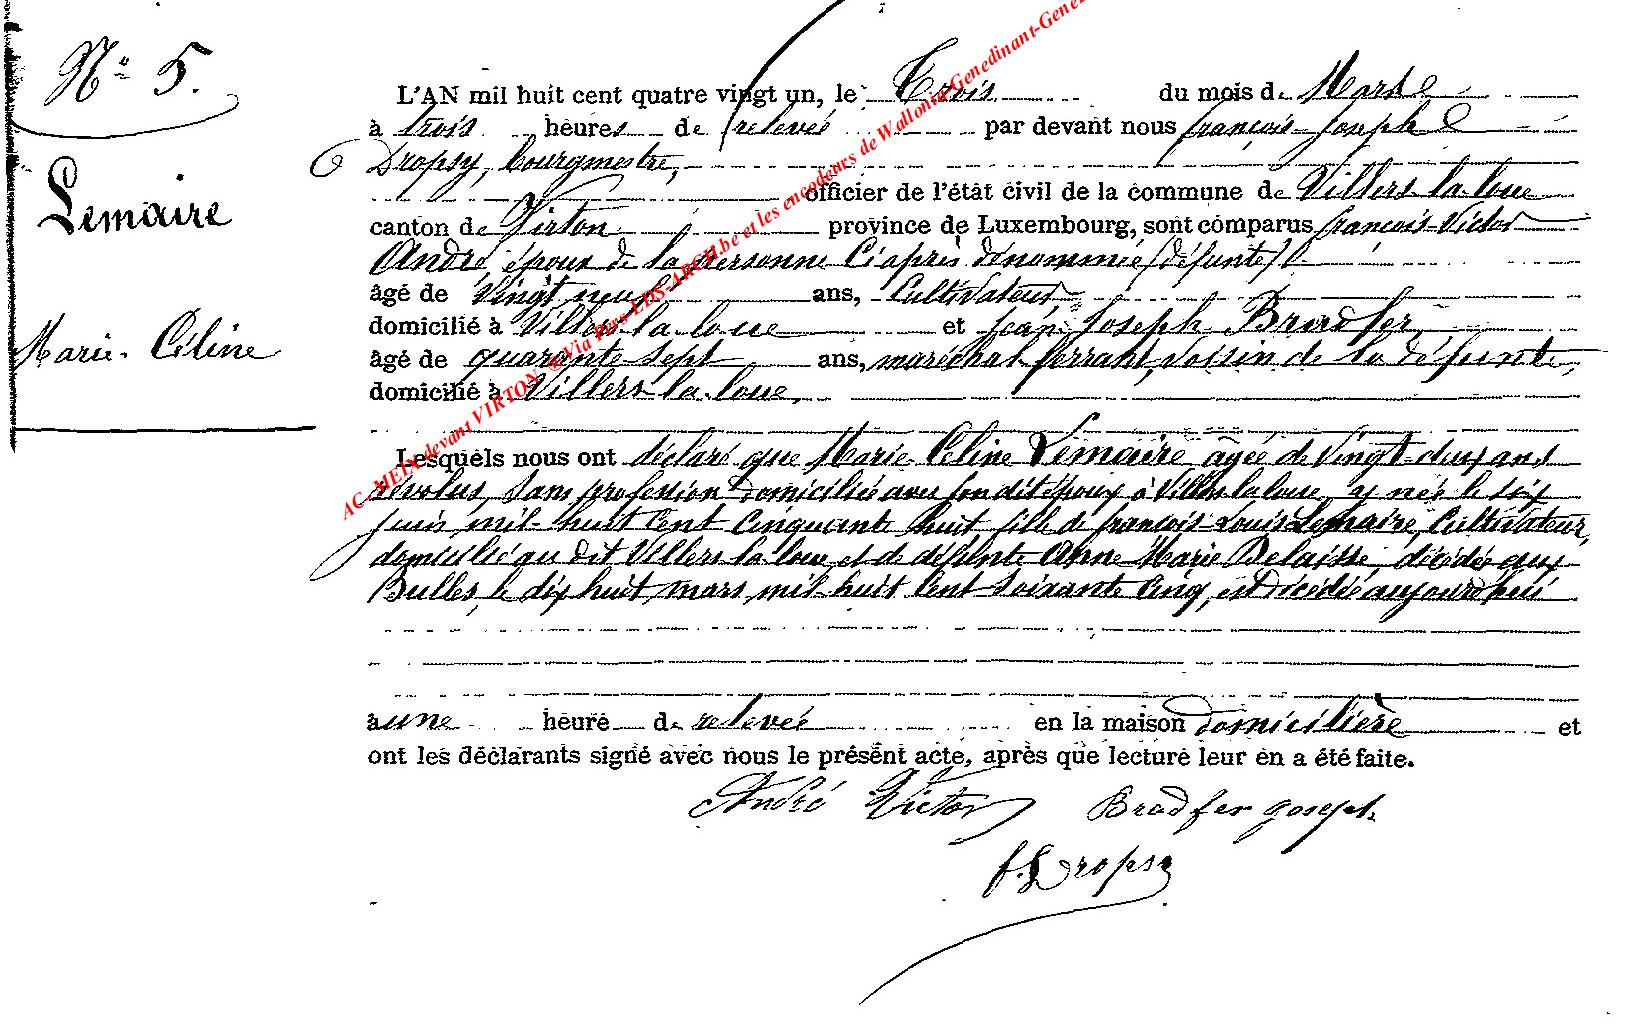 N° 5.
Lemaire
Marie-Céline
L'AN mil huit cent quatre vingt un, le Trois du mois de Mars
à trois heures de relevée par devant nous françois-Joseph
Dropsy, bourgmestre,
officier de l'état civil de la commune de Villers-la-loue
canton de Virton province de Luxembourg, sont comparus françois-Victor
André, époux de la personne Ciaprès dénommée (défunte)
âgé de Vingt neuf ans, Cultivateur
domicilié à Villers-la-loue et Jean Joseph Bradfer,
âgé de quarante sept ans, maréchal ferrant, Voisin de la défunte,
domicilié à Villers-la-loue,
Lesquels nous ont déclaré que Marie-Céline Lemaire agée de Vingt-deux ans
révolus, Sans profession domiciliée avec son dit époux à Villers la loue, y née le six
juin mil-huit Cent Cinquante huit fille de françois-Louis Lemaire, Cultivateur,
domicilié au dit Villers-la-loue et de défunte Anne Marie Delaisse, décédée aux
Bulles, le dix huit mars mil-huit Cent-Soixante Cinq, est décédée aujourd'hui
à une heure de relevée en la maison domicilière et
ont les déclarants signé avec nous le présent acte, après que lecture leur en a été faite.
André Victor Bradfer Joseph
f. J. Dropsy
AC-MEIX devant VIRTON ® Via Pers-LDS-ARCH.be et les encodeurs de Wallonia-Genedinant-Gene